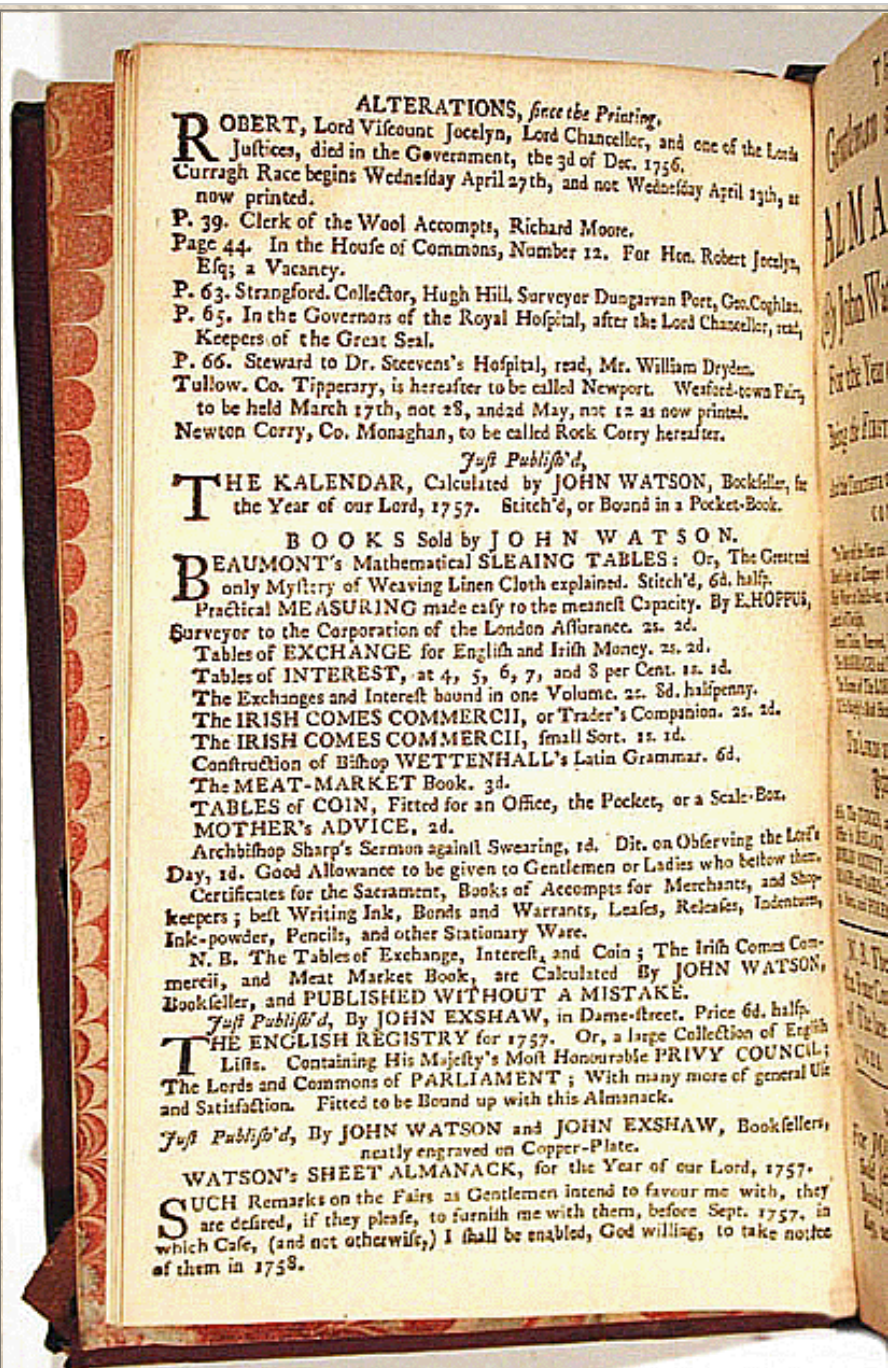 ALTERATIONS, ſince the Printing,
ROBERT, Lord Viſcount Jocelyn, Lord Chancellor, and one of the Lords
Juſtices, died in the Government, the 3d of Dec. 1756.
Curragh Race begins Wedneſday April 27th, and not Wedneſday April 13th, as
now printed.
P. 39. Clerk of the Wool Accompts, Richard Moore.
Page 44. In the Houſe of Commons, Number 12. For Hon. Robert Jocelyn,
Eſq; a Vacancy.
P. 63. Strangford. Collector, Hugh Hill. Surveyor Dungarvan Port, Geo. Coghlan.
P. 65. In the Governors of the Royal Hoſpital, after the Lord Chancellor, read,
Keepers of the Great Seal.
P. 66. Steward to Dr. Steevens's Hoſpital, read, Mr. William Dryden.
Tullow. Co. Tipperary, is hereafter to be called Newport. Wexford-town Fairs,
to be held March 17th, not 28, and 2d May, not 12 as now printed.
Newton Corry, Co. Monaghan, to be called Rock Corry hereafter.
Juſt Publiſh'd,
THE KALENDAR, Calculated by JOHN WATSON, Bookſeller, for
the Year of our Lord, 1757. Stitch'd, or Bound in a Pocket-Book.
BOOKS Sold by JOHN WATSON.
BEAUMONT's Mathematical SLEAING TABLES: Or, The Great and
only Myſtery of Weaving Linen Cloth explained. Stitch'd, 6d. halfp.
Practical MEASURING made eaſy to the meaneſt Capacity. By E. HOPPUS,
Surveyor to the Corporation of the London Aſſurance. 2s. 2d.
Tables of EXCHANGE for Engliſh and Iriſh Money. 2s. 2d.
Tables of INTEREST, at 4, 5, 6, 7, and 8 per Cent. 1s. 1d.
The Exchanges and Intereſt bound in one Volume. 2s. 8d. halfpenny.
The IRISH COMES COMMERCII, or Trader's Companion. 2s. 2d.
The IRISH COMES COMMERCII, ſmall Sort. 1s. 1d.
Conſtruction of Biſhop WETTENHALL's Latin Grammar. 6d.
The MEAT-MARKET Book. 3d.
TABLES of COIN, Fitted for an Office, the Pocket, or a Scale-Box.
MOTHER's ADVICE. 2d.
Archbiſhop Sharp's Sermon againſt Swearing, 1d. Dit. on Obſerving the Lord's
Day, 1d. Good Allowance to be given to Gentlemen or Ladies who beſtow them.
Certificates for the Sacrament, Books of Accompts for Merchants, and Shop-
keepers; beſt Writing Ink, Bonds and Warrants, Leaſes, Releaſes, Indentures,
Ink-powder, Pencils, and other Stationary Ware.
N. B. The Tables of Exchange, Intereſt, and Coin; The Iriſh Comes Com-
mercii, and Meat Market Book, are Calculated By JOHN WATSON,
Bookſeller, and PUBLISHED WITHOUT A MISTAKE.
Juſt Publiſh'd, By JOHN EXSHAW, in Dame-ſtreet. Price 6d. halfp.
THE ENGLISH REGISTRY for 1757. Or, a large Collection of Engliſh
Liſts. Containing His Majeſty's Moſt Honourable PRIVY COUNCIL;
The Lords and Commons of PARLIAMENT; With many more of general Uſe
and Satisfaction. Fitted to be Bound up with this Almanack.
Juſt Publiſh'd, By JOHN WATSON and JOHN EXSHAW, Bookſellers,
neatly engraved on Copper-Plate.
WATSON's SHEET ALMANACK, for the Year of our Lord, 1757.
SUCH Remarks on the Fairs as Gentlemen intend to favour me with, they
are deſired, if they pleaſe, to furniſh me with them, before Sept. 1757, in
which Caſe, (and not otherwiſe,) I ſhall be enabled, God willing, to take notice
of them in 1758.
Gentleman
ALMA
By John Wat
For the Year
Being the FIRST